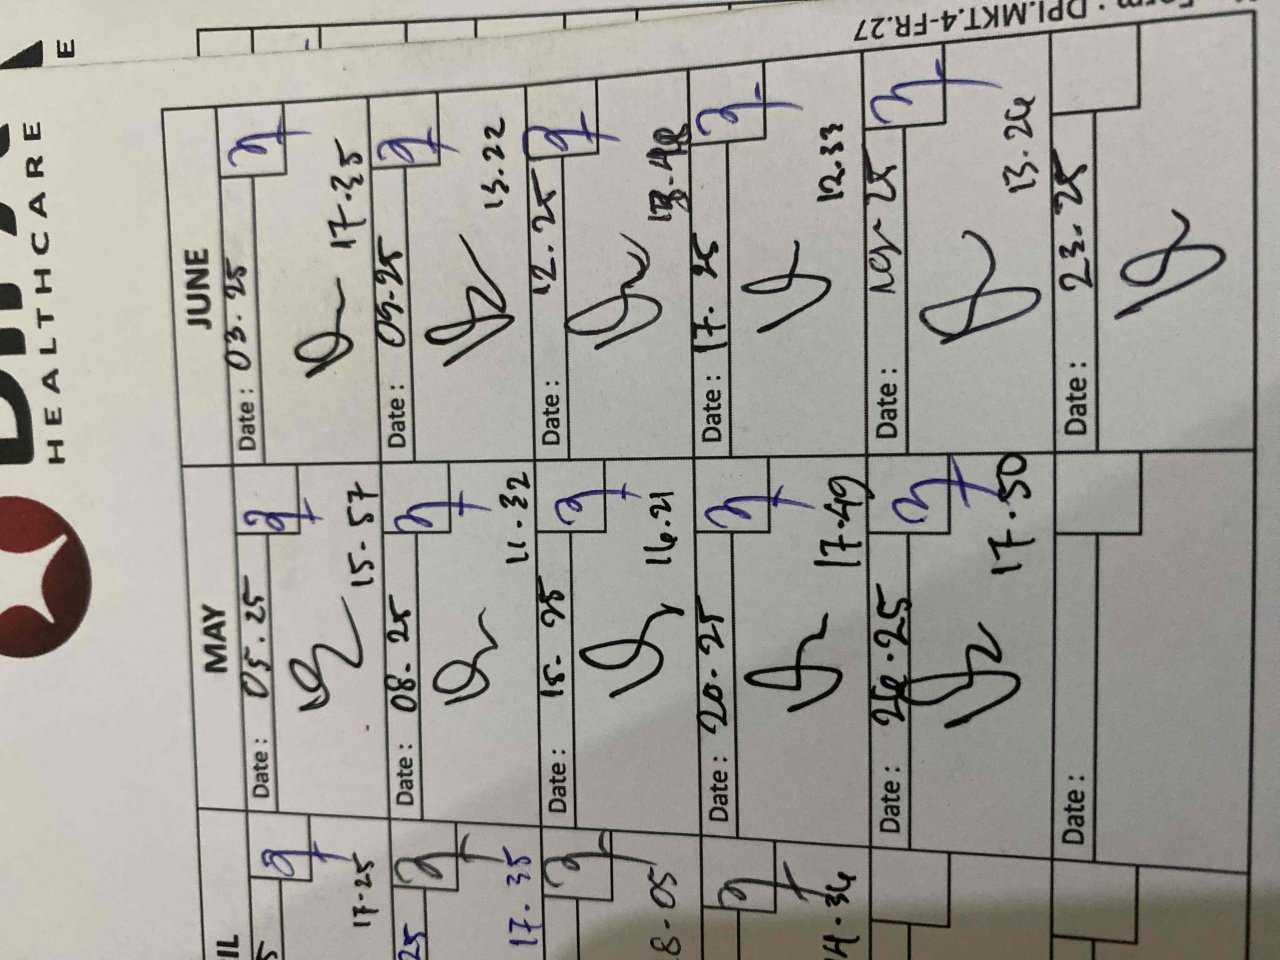 HEALTHCARE
E
Form : DPI.MKT.4-FR.27
IL
MAY
JUNE
5
17-25
Date : 05.25
15.57
Date : 03.25
17.35
25
17.35
Date : 08.25
11.32
Date : 09.25
13.22
8-05
Date : 15.25
16.21
Date : 12.25
Date : 20.25
17.49
Date : 17.25
12.33
Date : 26.25
17.50
Date :
25
13.26
Date :
Date : 23.25